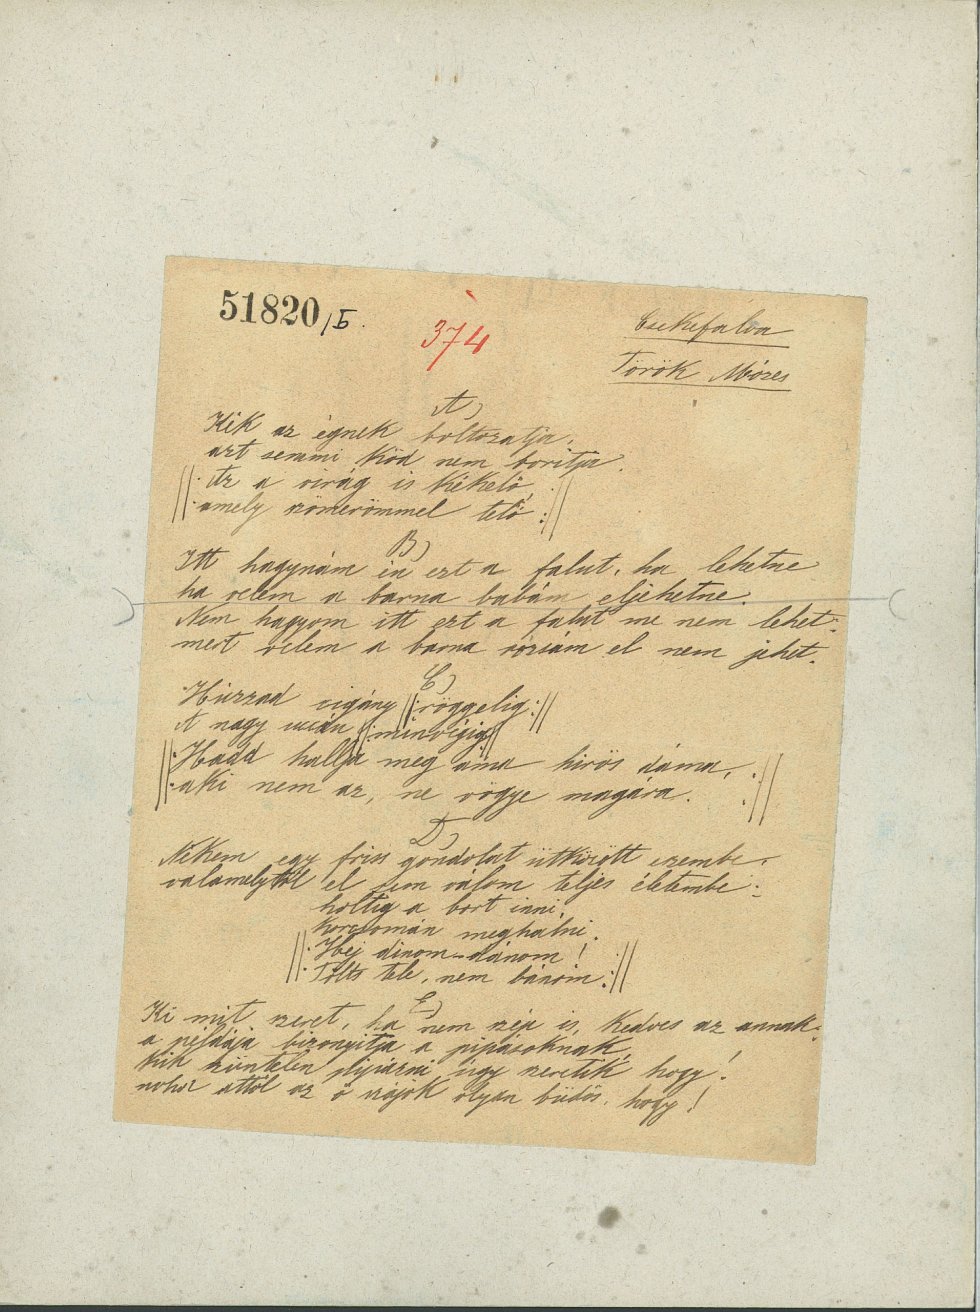 51820/5.
374
Csekefalva
Török Mózes
A)
Kék az égnek boltozatja,
azt semmi köd nem boritja.
||: Az a virág is kékelő,
amely szömörömmel telő :||
B)
Itt hagynám én ezt a falut, ha lehetne
ha velem a barna babám eljöhetne.
Nem hagyom itt ezt a falut me nem lehet:
mert velem a barna rózsám el nem jehet.
C)
Húzzad cigány ||: röggelig :||
A nagy ucán ||: minvégig :||
||: Hadd hallja meg áma hirös dáma,
aki nem az, ne vögye magára. :||
D)
Nekem egy friss gondolat ütközött eszembe,
valamelytől el sem válom teljes életembe:
holtig a bort inni,
korcsomán meghalni.
||: Héj dinom-dánom!
Tölts tele, nem bánom. :||
E)
Ki mit szeret, ha nem szép is, kedves az annak:
a példája bizonyitja a pipásoknak,
kik szüntelen szeretik hogy!
attól az ő szájok olyan büdös, hogy!